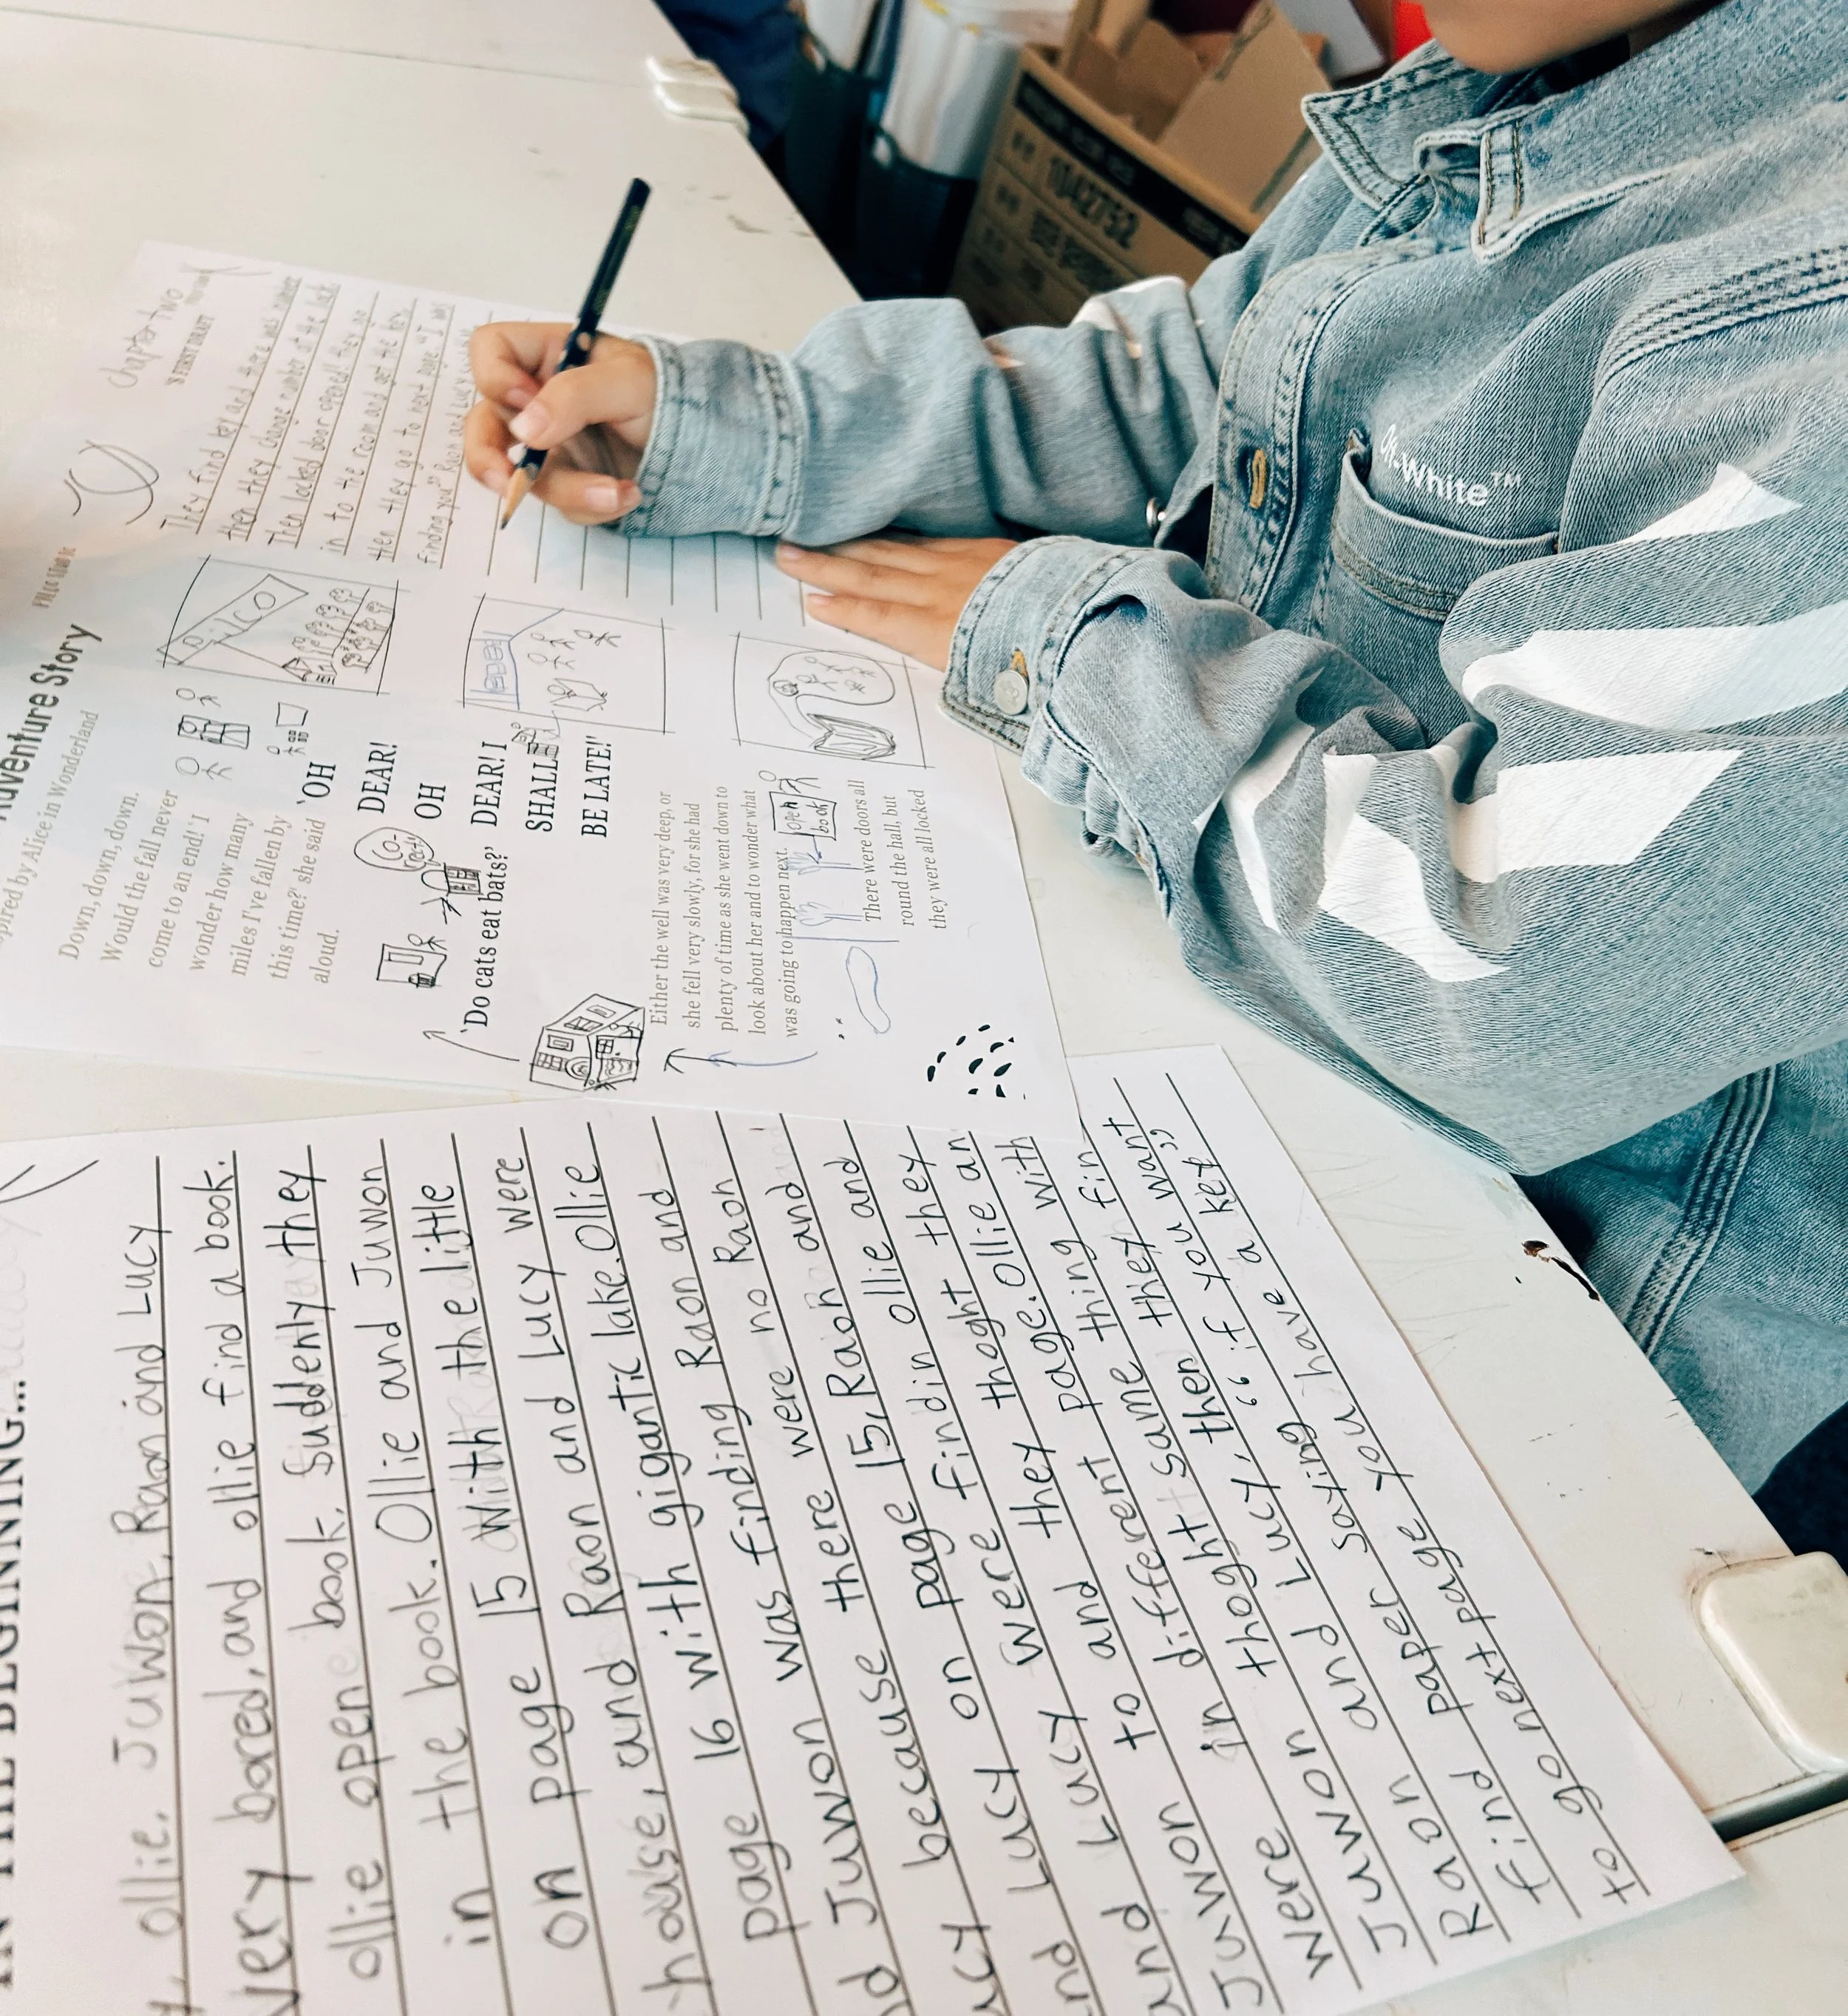 IN THE BEGINNING...
ollie. Juwon, Raon and Lucy
very bored, and ollie find a book.
ollie open book. Suddenly they
in the book. Ollie and Juwon
on page 15 with the little
house, and Raon and Lucy were
page 16 with gigantic lake. Ollie
Juwon was finding Raon and
because there were no Raon
Lucy on page 15, Raon and
Lucy were findin ollie and
and Lucy thoght they
Juwon to and they page. Ollie an
were in different page with
Juwon thoght same thing
Raon and Lucy, then they fin
find paper saying "if you want
to go next page you have a key"
Adventure Story
Inspired by Alice in Wonderland
Down, down, down.
Would the fall never
come to an end! 'I
wonder how many
miles I've fallen by
this time?' she said
aloud.
'OH
DEAR!
OH
DEAR! I
SHALL
BE LATE!'
'Do cats eat bats?'
Either the well was very deep, or
she fell very slowly, for she had
plenty of time as she went down to
look about her and to wonder what
was going to happen next.
open
book
There were doors all
round the hall, but
they were all locked
Chapter Two
'S FIRST DRAFT
They find key and there was number
then they change number at the lock
Then locked door opened! they go
in to the room and get the key.
then they go to next page "I was
finding you" Raon and Lucy
Off-White™
1042752